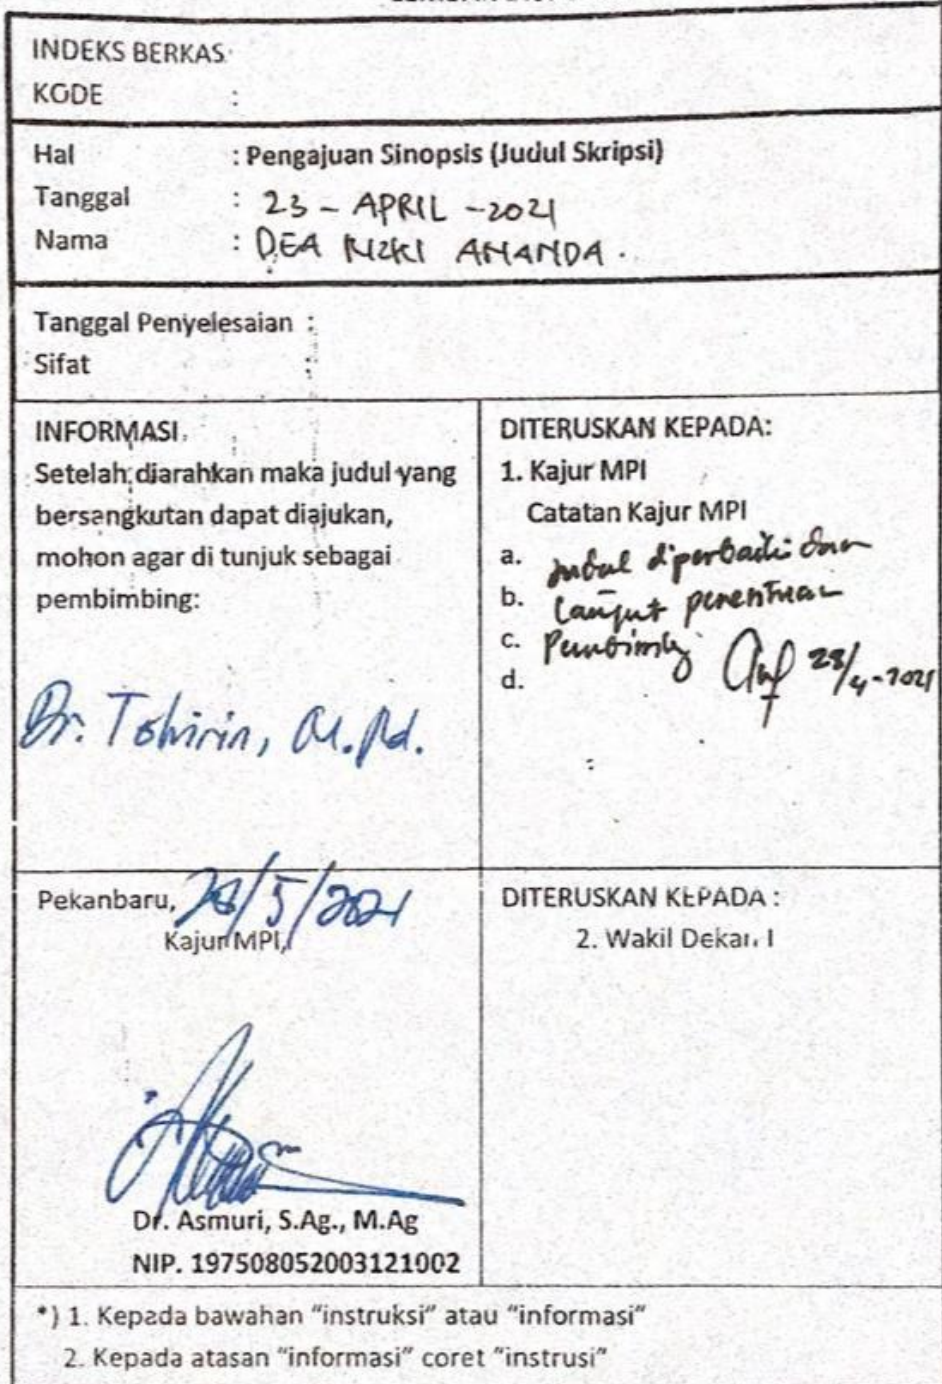 INDEKS BERKAS
KODE :
Hal : Pengajuan Sinopsis (Judul Skripsi)
Tanggal : 23 - APRIL - 2021
Nama : DEA RIZKI ANANDA.
Tanggal Penyelesaian :
Sifat :
INFORMASI
Setelah diarahkan maka judul yang
bersangkutan dapat diajukan,
mohon agar di tunjuk sebagai
pembimbing:
Dr. Tohirin, M.Pd.
DITERUSKAN KEPADA:
1. Kajur MPI
Catatan Kajur MPI
a. Judul diperbaiki dan
b. lanjut penentuan
c. Pembimbing 28/4-2021
d.
Pekanbaru, 28/5/2021
Kajur MPI,
Dr. Asmuri, S.Ag., M.Ag
NIP. 197508052003121002
DITERUSKAN KEPADA :
2. Wakil Dekan I
*) 1. Kepada bawahan "instruksi" atau "informasi"
2. Kepada atasan "informasi" coret "instrusi"